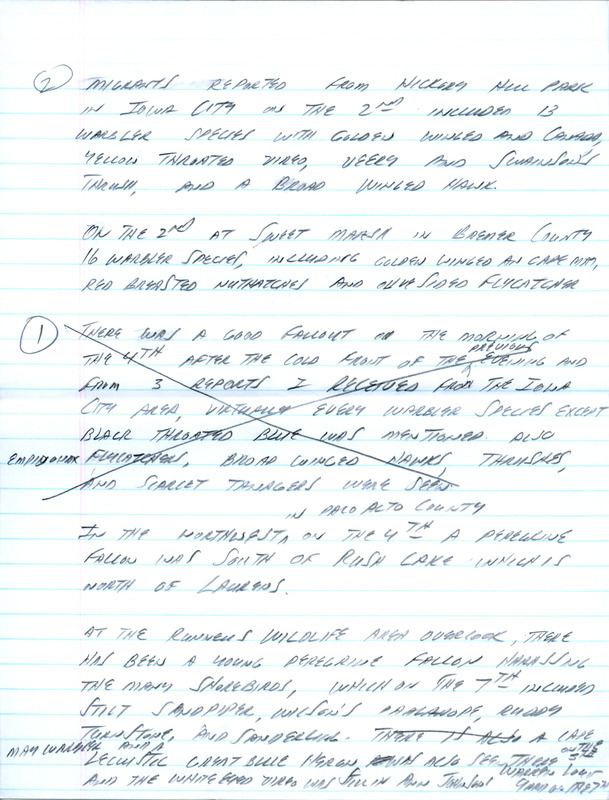 ② MIGRANTS REPORTED FROM HICKERY HILL PARK
IN IOWA CITY ON THE 2ND INCLUDED 13
WARBLER SPECIES WITH GOLDEN WINGED AND CANADA,
YELLOW THROATED VIREO, VEERY AND SWAINSON'S
THRUSH, AND A BROAD WINGED HAWK.
ON THE 2ND AT SWEET MARSH IN BREMER COUNTY
16 WARBLER SPECIES, INCLUDING GOLDEN WINGED AN CAPE MAY,
RED BREASTED NUTHATCHES AND OLIVE SIDED FLYCATCHER
① THERE WAS A GOOD FALLOUT ON THE MORNING OF
THE 4TH AFTER THE COLD FRONT OF THE PREVIOUS EVENING AND
FROM 3 REPORTS I RECEIVED FROM THE IOWA
CITY AREA, VIRTUALLY EVERY WARBLER SPECIES EXCEPT
BLACK THROATED BLUE WAS MENTIONED. ALSO
EMPIDONAX FLYCATCHERS, BROAD WINGED HAWKS, THRUSHES,
AND SCARLET TANAGERS WERE SEEN
IN PALO ALTO COUNTY
IN THE NORTHWEST, ON THE 4TH A PEREGRINE
FALCON WAS SOUTH OF RUSH LAKE WHICH IS
NORTH OF LAURENS.
AT THE RUNNELLS WILDLIFE AREA OVERLOOK, THERE
HAS BEEN A YOUNG PEREGRINE FALCON HARASSING
THE MANY SHOREBIRDS, WHICH ON THE 7TH INCLUDED
STILT SANDPIPER, WILSON'S PHALAROPE, RUDDY
TURNSTONE, AND SANDERLING. THERE IS ALSO A CAPE
MAY WARBLER AND A
LEUCISTIC GREAT BLUE HERON WAS ALSO SEEN THERE ON THE
AND THE WHITE EYED VIREO WAS STILL IN ANN JOHNSON